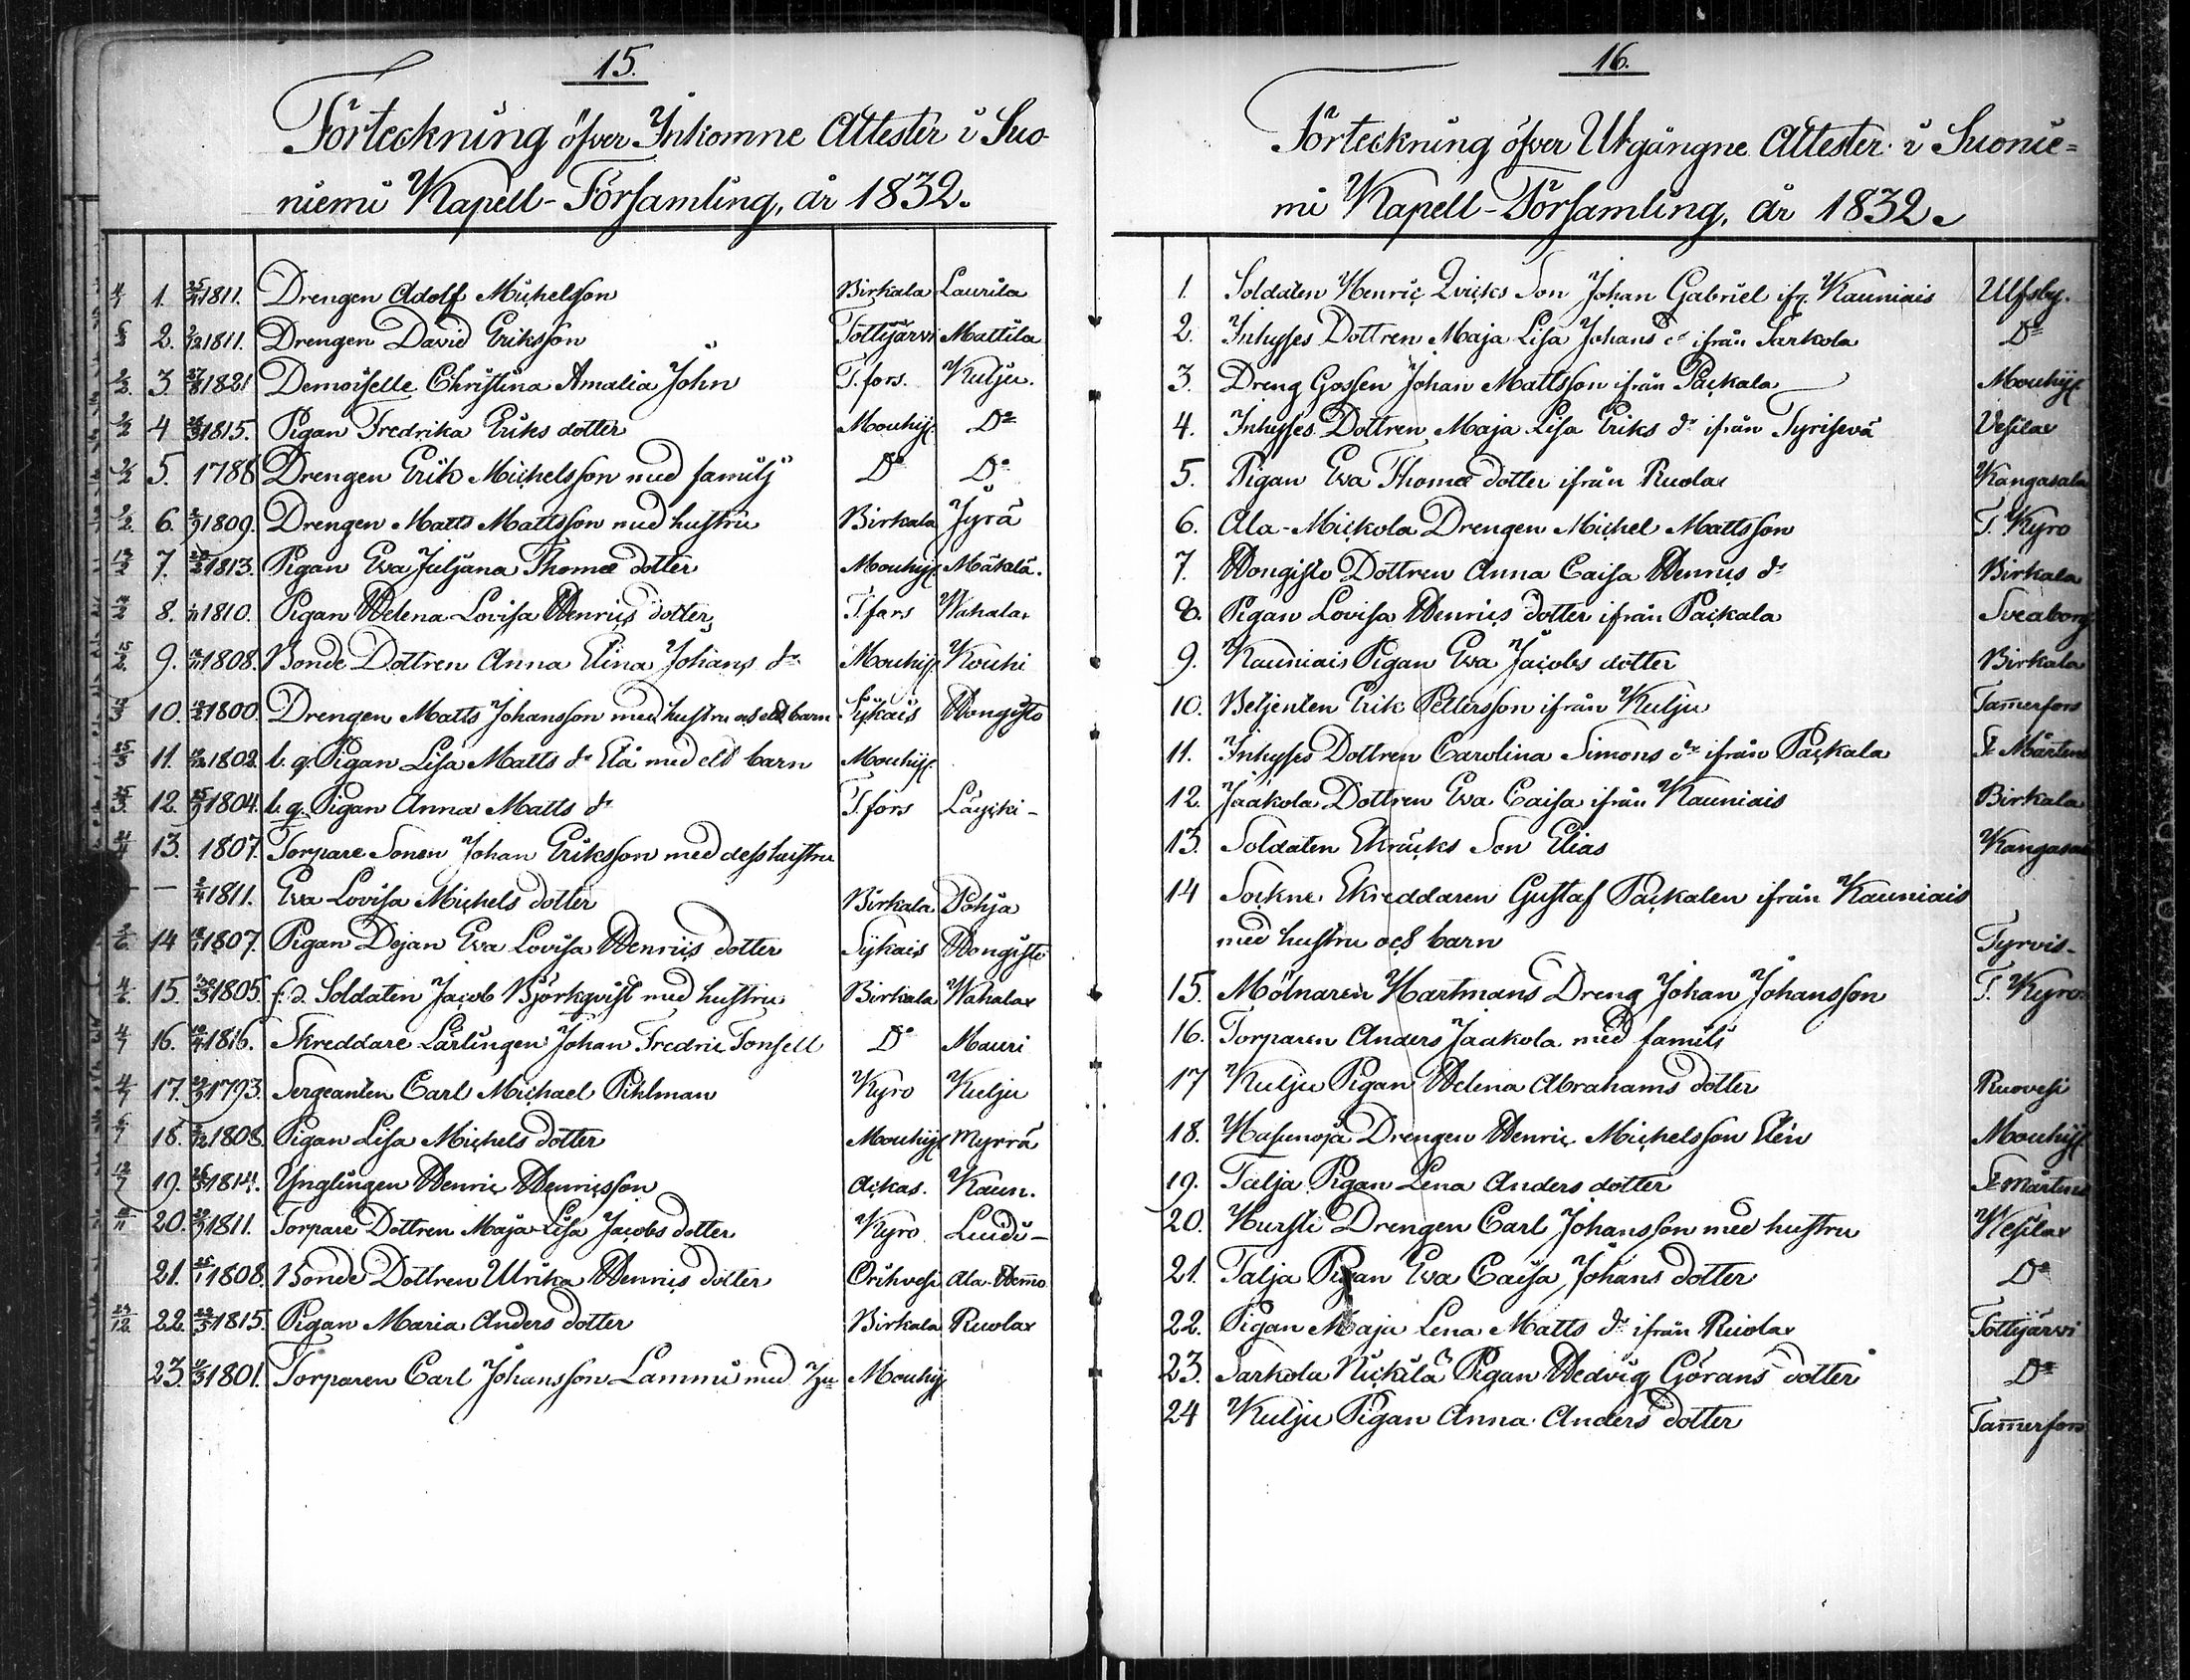 15.
Förteckning öfver Inkomne Attester i Suo-
niemi Kapell-Församling, år 1832.
1. 1811. Drengen Adolf Michelsson Birkala Laurila
2. 1811. Drengen David Eriksson Tottijärvi Mattila
3 1821 Demoiselle Christina Amalia John T.fors. Kulju.
4 1815. Pigan Fredrika Eriks dotter Mouhij. Do
5. 1788 Drengen Erik Michelsson med familj Do Do
6. 1809. Drengen Matts Mattsson med hustru Birkala Jyrä
7. 1813. Pigan Ewa Juljana Thomæ dotter Mouhij. MäkLä.
8. 1810. Pigan Helena Lovisa Henrics dotter T.fors Wahalax
9. 1808. Bonde Dottren Anna Elina Johans dr Mouhij. Kouhi
10. 1800. Drengen Matts Johansson med hustru och ett barn Sykäis Hongisto
11. 1802. b. q. Pigan Lisa Matts dr Elä med ett barn Mouhij.
12. 1804. b. q. Pigan Anna Matts dr T.fors
13. 1807. Torpare Sonen Johan Eriksson med dess hustru
— — 1811. Ewa Lovisa Michels dotter Birkala Pohja
14 1807. Pigan Dejan Ewa Lovisa Henrics dotter Sykais Hongisto
15. 1805. f. d. Soldaten Jacob Björkqvist med hustru Birkala Wahalax
16. 1816. Skreddare Lärlingen Johan Fredric Tonsell Do Mauri
17. 1793. Sergeanten Carl Michael Pihlman Kyro Kulju
18. 1808 Pigan Lisa Michels dotter Mouhij. Myrrä
19. 1814. Ynglingen Henric Henricsson Ackas. Kaun.
20. 1811. Torpare Dottren Maja Lisa Jacobs dotter Kyro
21. 1808. Bonde Dottren Ulrika Henrics dotter Orihvesi Ala-Hemmo
22. 1815. Pigan Maria Anders dotter Birkala Ruolax
23. 1801. Torparen Carl Johansson Lammi med Mouhij
16.
Förteckning öfver Utgångne Attester i Suonie=
mi Kapell-Församling, år 1832.
1. Soldaten Henric Qvicks Son Johan Gabriel ifr. Kauniais Ulfsby.
2. Inhyses Dottren Maja Lisa Johans dr ifrån Sarkola Do
3. Dreng Gossen Johan Mattsson ifrån Packala Mouhij
4. Inhyses Dottren Maja Lisa Eriks dr ifrån Tyrisevä Vesilax
5. Pigan Ewa Thomæ dotter ifrån Ruolax Kangasala
6. Ala-Mickola Drengen Michel Mattsson T. Kyro
7. Hongisto Dottren Anna Caisa Henrics dr Birkala
8. Pigan Lovisa Henrics dotter ifrån Packala Sveaborg
9. Kauniais Pigan Ewa Jacobs dotter Birkala
10. Betjenten Erik Pettersson ifrån Kulju Tamerfors
11. Inhyses Dottren Carolina Simons dr ifrån Packala St Mårtens
12. Jaakola Dottren Ewa Caisa ifrån Kauniais Birkala
13. Soldaten Skräcks Son Elias Kangasala
14 Sockne Skreddaren Gustaf Packalen ifrån Kauniais
med hustru och barn Tyrvis-
15. Mölnaren Hartmans Dreng Johan Johansson T. Kyro
16. Torparen Anders Jaakola med familj
17 Kulju Pigan Helena Abrahams dotter Ruovesi
18. Hasunoja Drengen Henric Michelsson Elén Mouhij
19. Talja Pigan Lena Anders dotter St Mårtens
20. Hursti Drengen Carl Johansson med hustru Wesilax
21. Talja Pigan Ewa Caisa Johans dotter Do
22. Pigan Maja Lena Matts dr ifrån Ruolax Tottijärvi
23. Sarkola Nickilä Pigan Hedvig Görans dotter Do
24 Kulju Pigan Anna Anders dotter Tamerfors